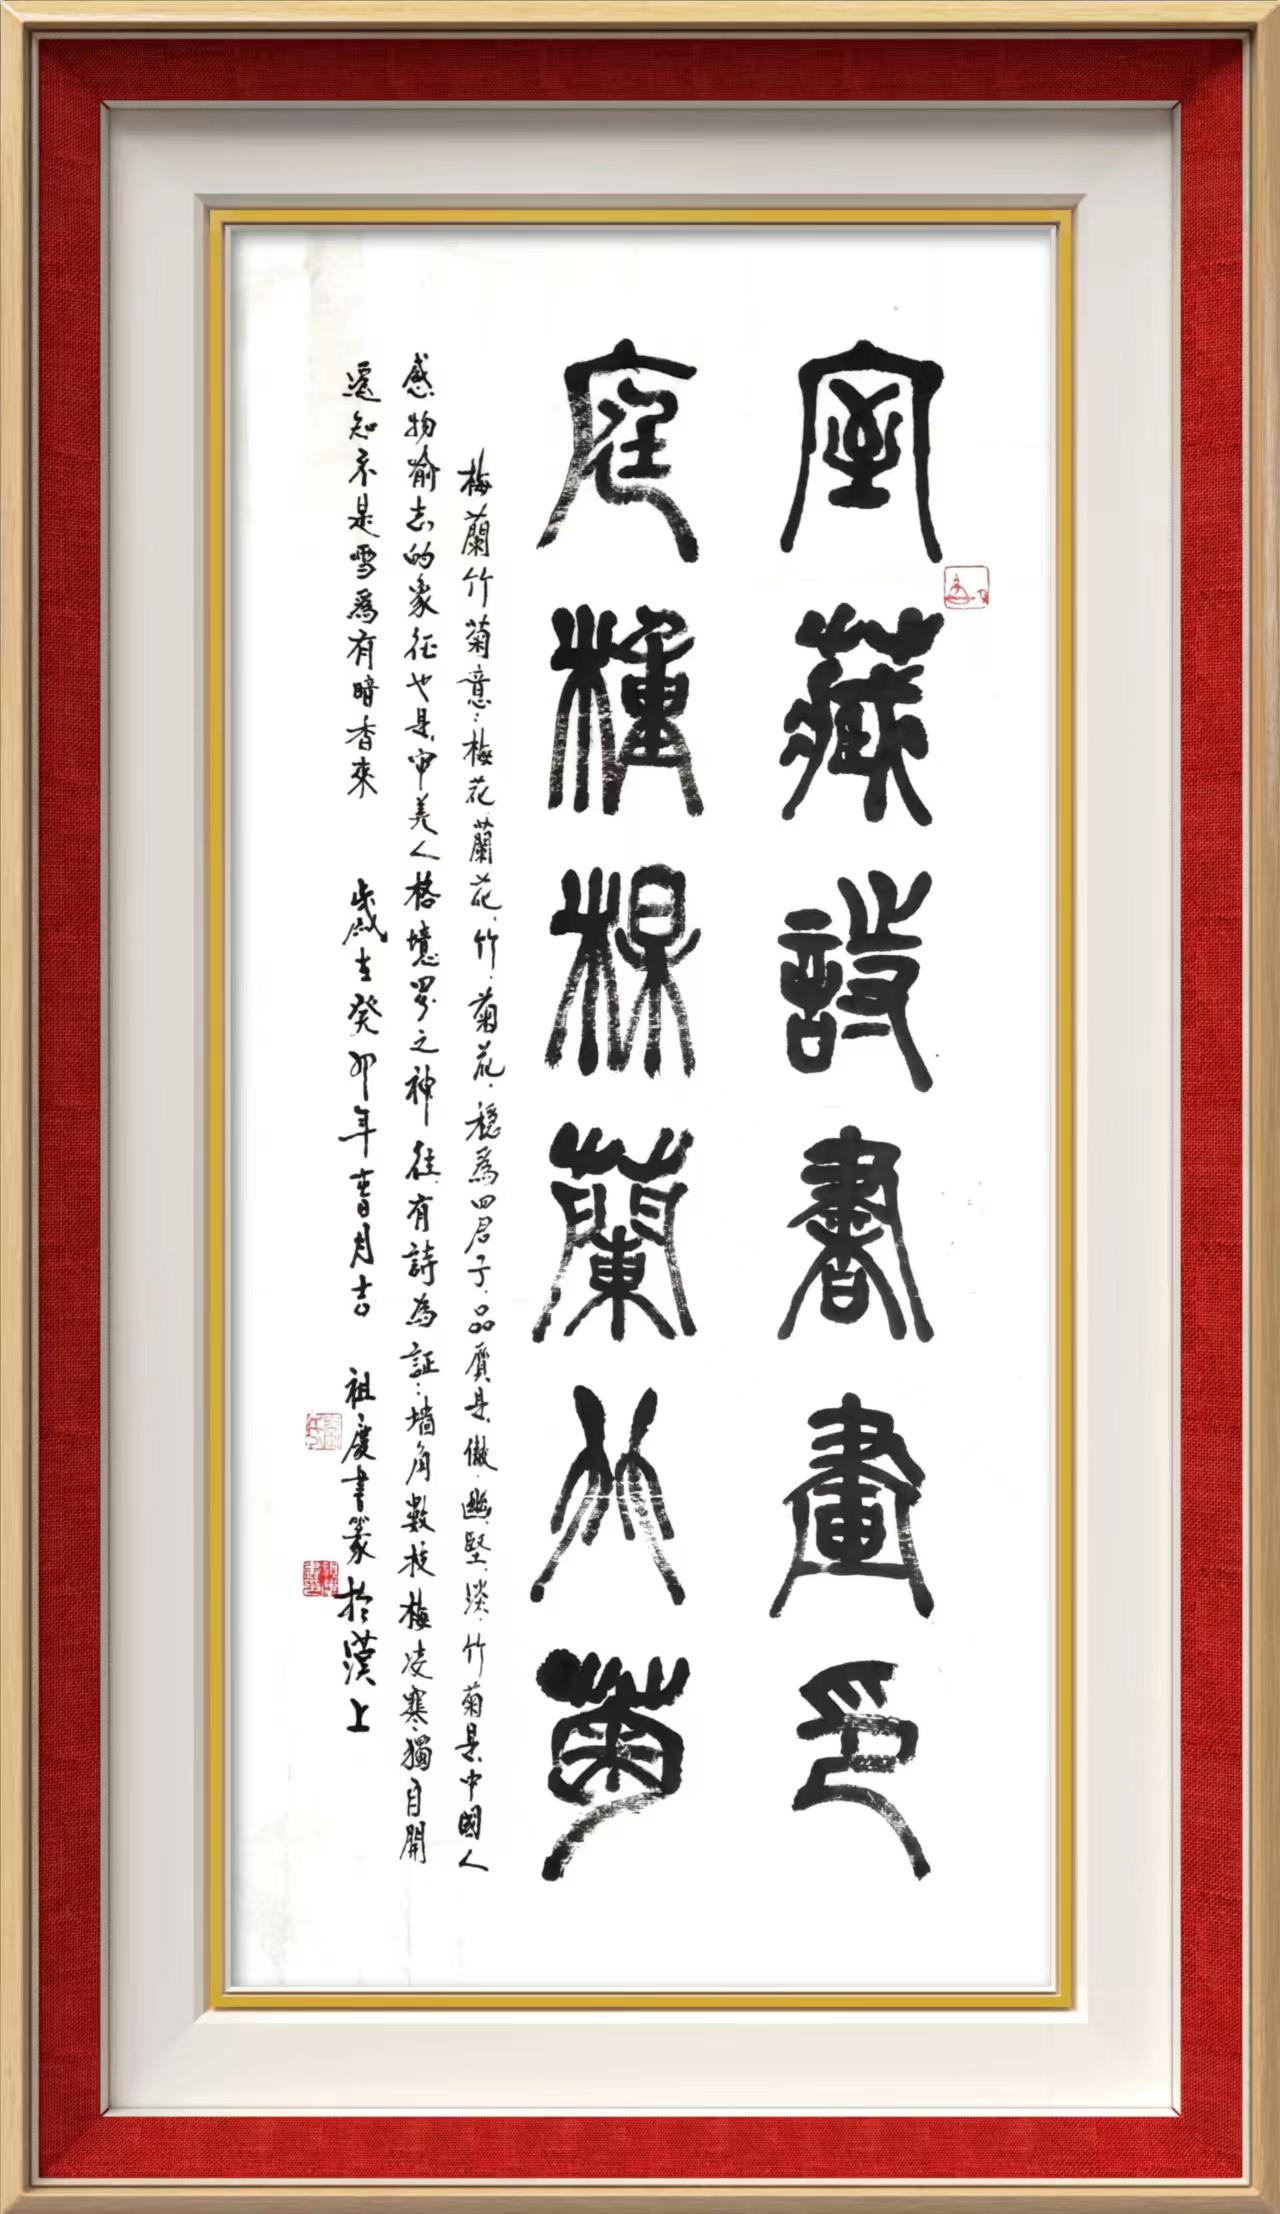 室藏詩書畫印
庭種楳蘭竹菊
梅蘭竹菊意：梅花、蘭花、竹、菊花，穩爲四君子，品質是傲、幽、堅、淡，竹菊是中國人
感物喻志的象征也是审美人格境界之神往有詩為証：墙角數枝梅凌寒獨自開
遥知不是雪爲有暗香來 歲在癸卯年春月吉 祖慶書篆於漢上